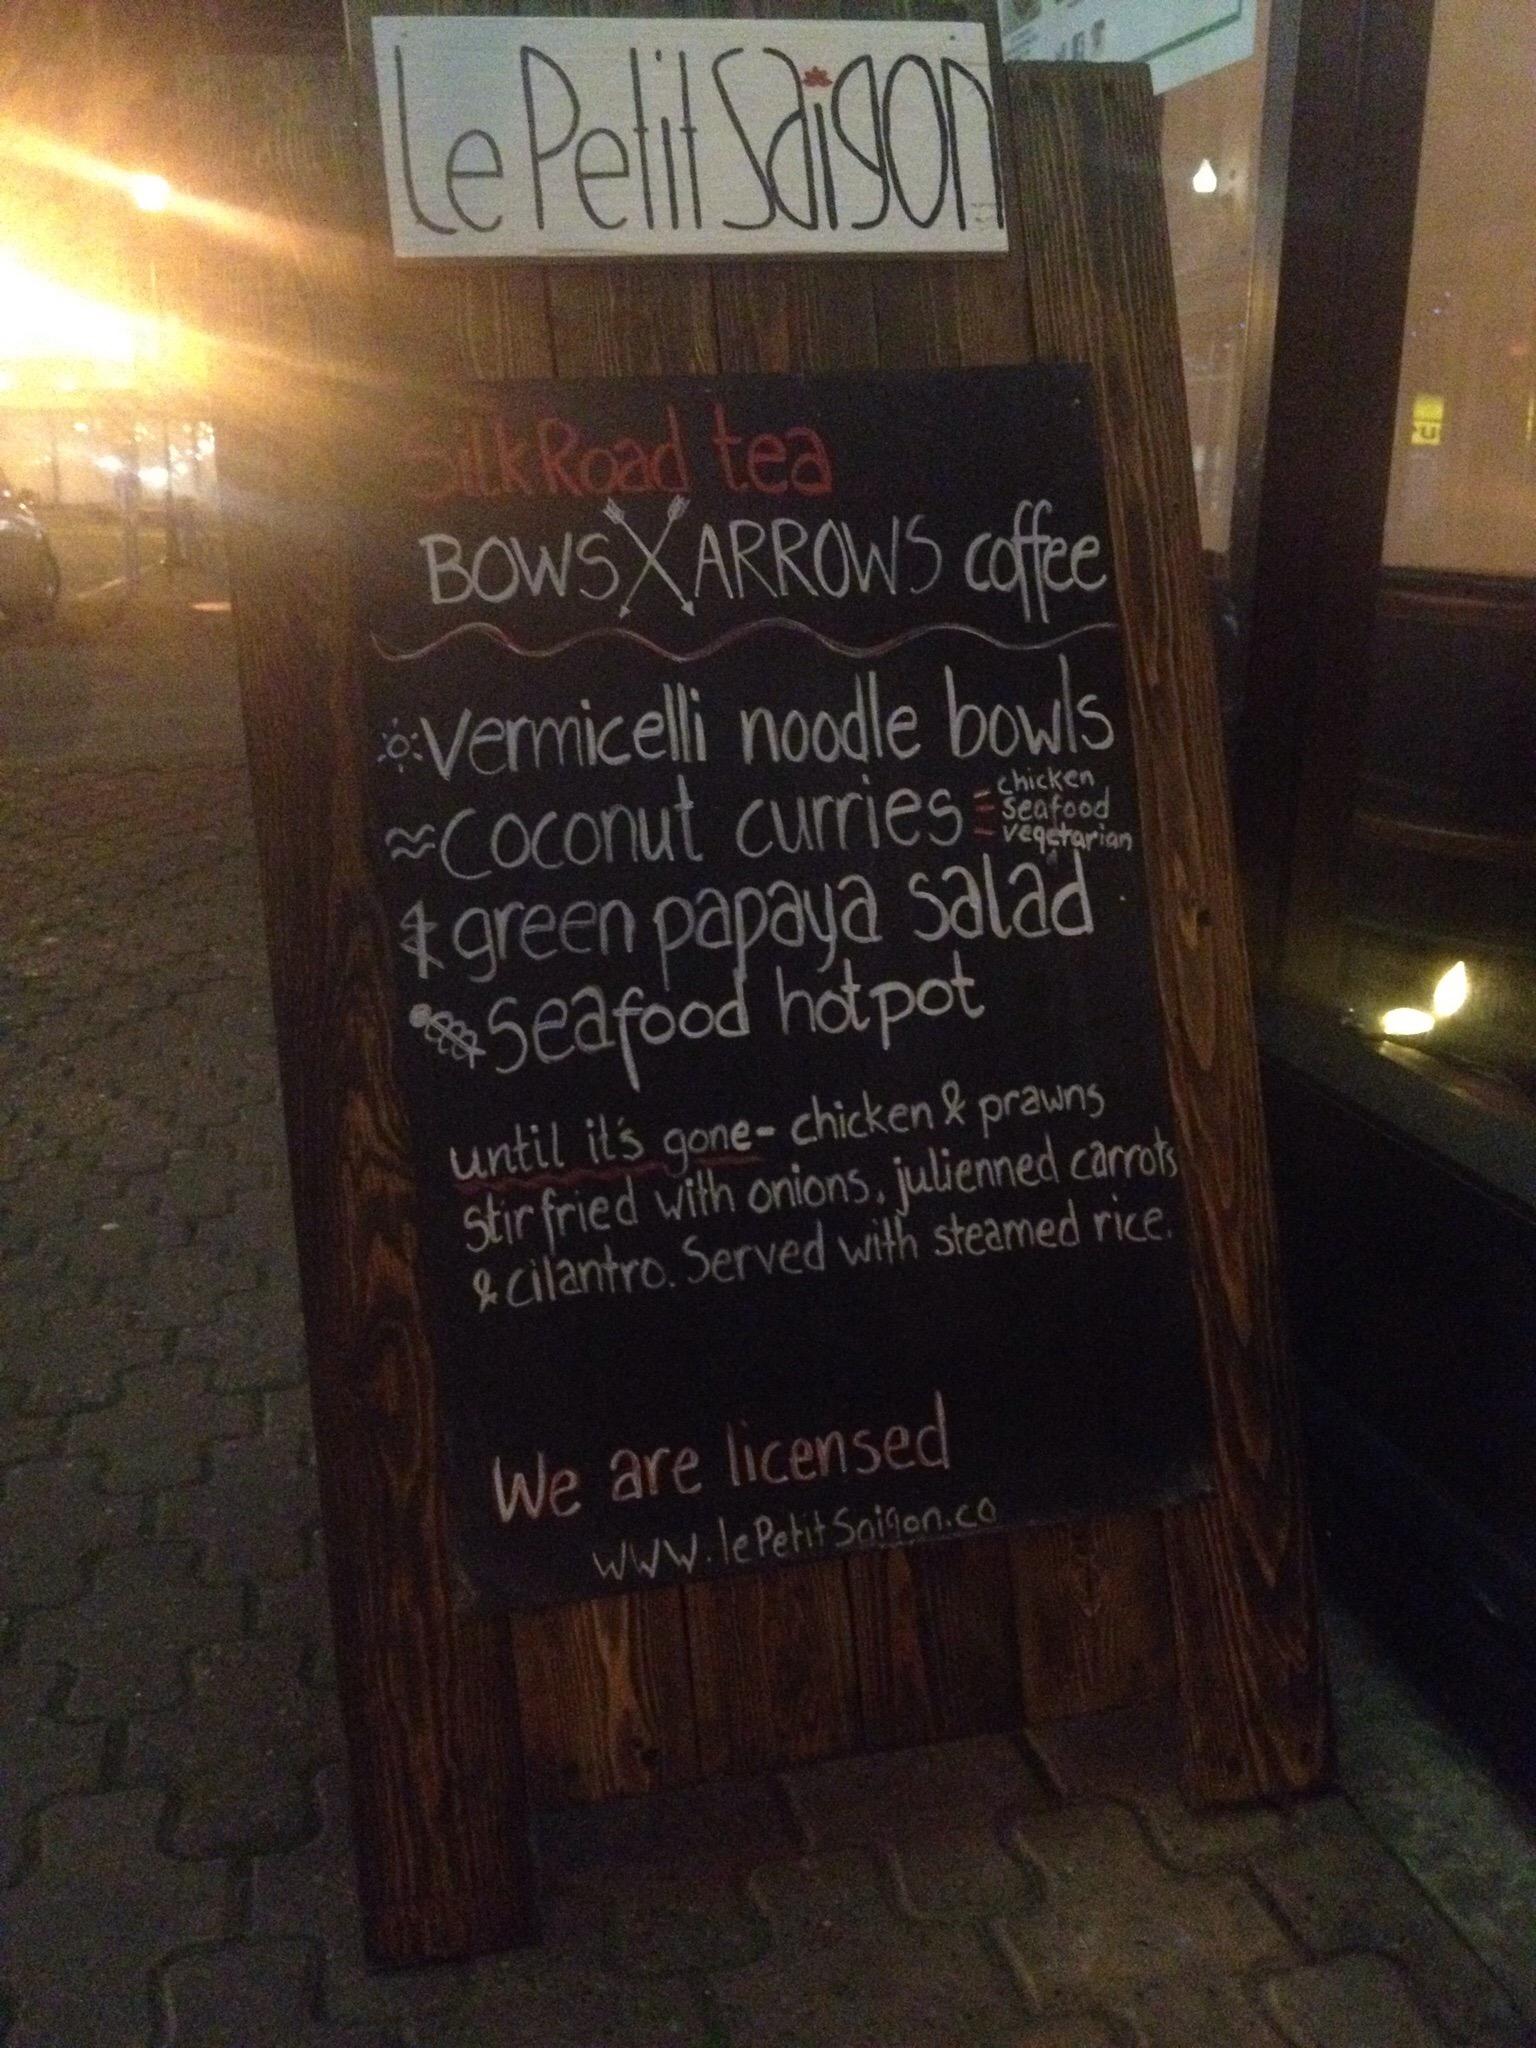 Le Petit Saigon
SilkRoad tea
BOWS X ARROWS coffee
vermicelli noodle bowls
coconut curries
- chicken
- seafood
- vegetarian
& green papaya salad
seafood hotpot
until it's gone - chicken & prawns
stirfried with onions, julienned carrots
& cilantro. Served with steamed rice.
We are licensed
www.lePetitSaigon.ca